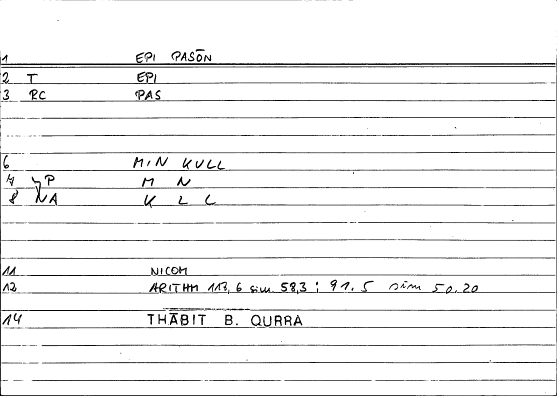 1 EPI PASŌN
2 T EPI
3 RC PAS
6 MIN KULL
7 P M N
8 NA K L L
11 NICOM
12 ARITHM 113,6 sim 58,3 ; 91.5 sim 50.20
14 THĀBIT B. QURRA